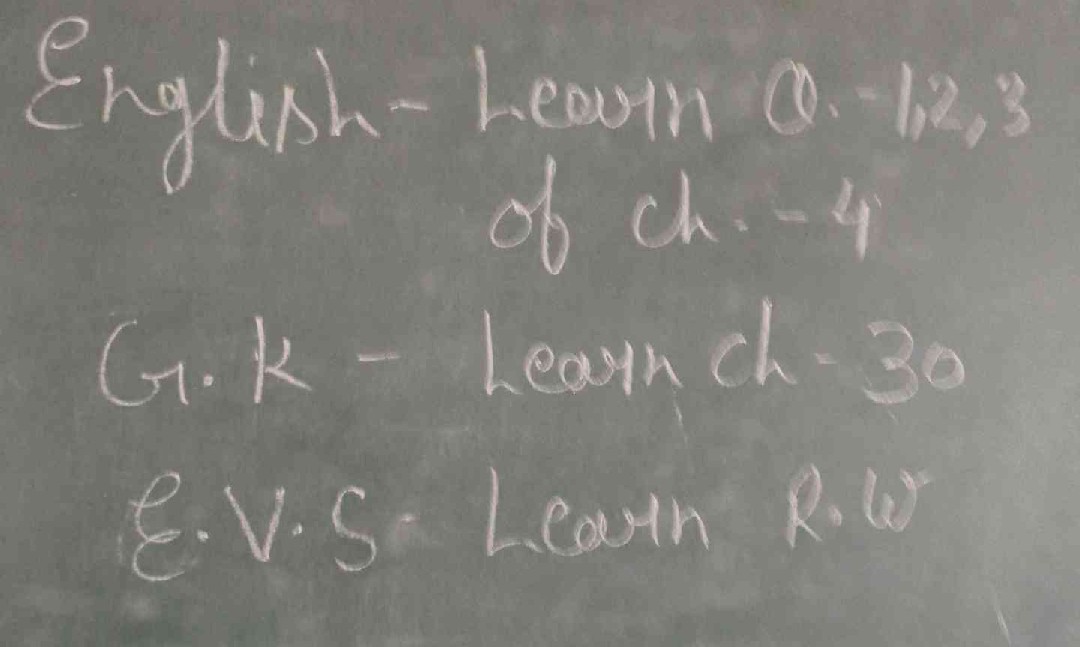 English - Learn Q. - 1,2,3
of ch. - 4
G.K - Learn ch - 30
E.V.S - Learn R.W